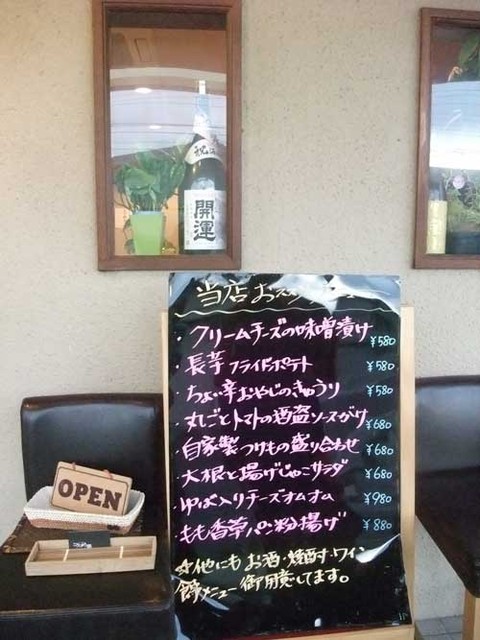 祝
開運
当店おススメメニュー
・クリームチーズの味噌漬け ¥580
・長芋フライドポテト ¥580
・ちょい辛おやじのきゅうり ¥580
・丸ごとトマトの酒盗ソースがけ ¥680
・自家製つけもの盛り合わせ ¥680
・大根と揚げじゃこサラダ ¥680
・ゆば入りチーズオムオム ¥980
・もも香草パン粉揚げ ¥880
☆他にもお酒・焼酎・ワイン
メニュー御用意してます。
OPEN